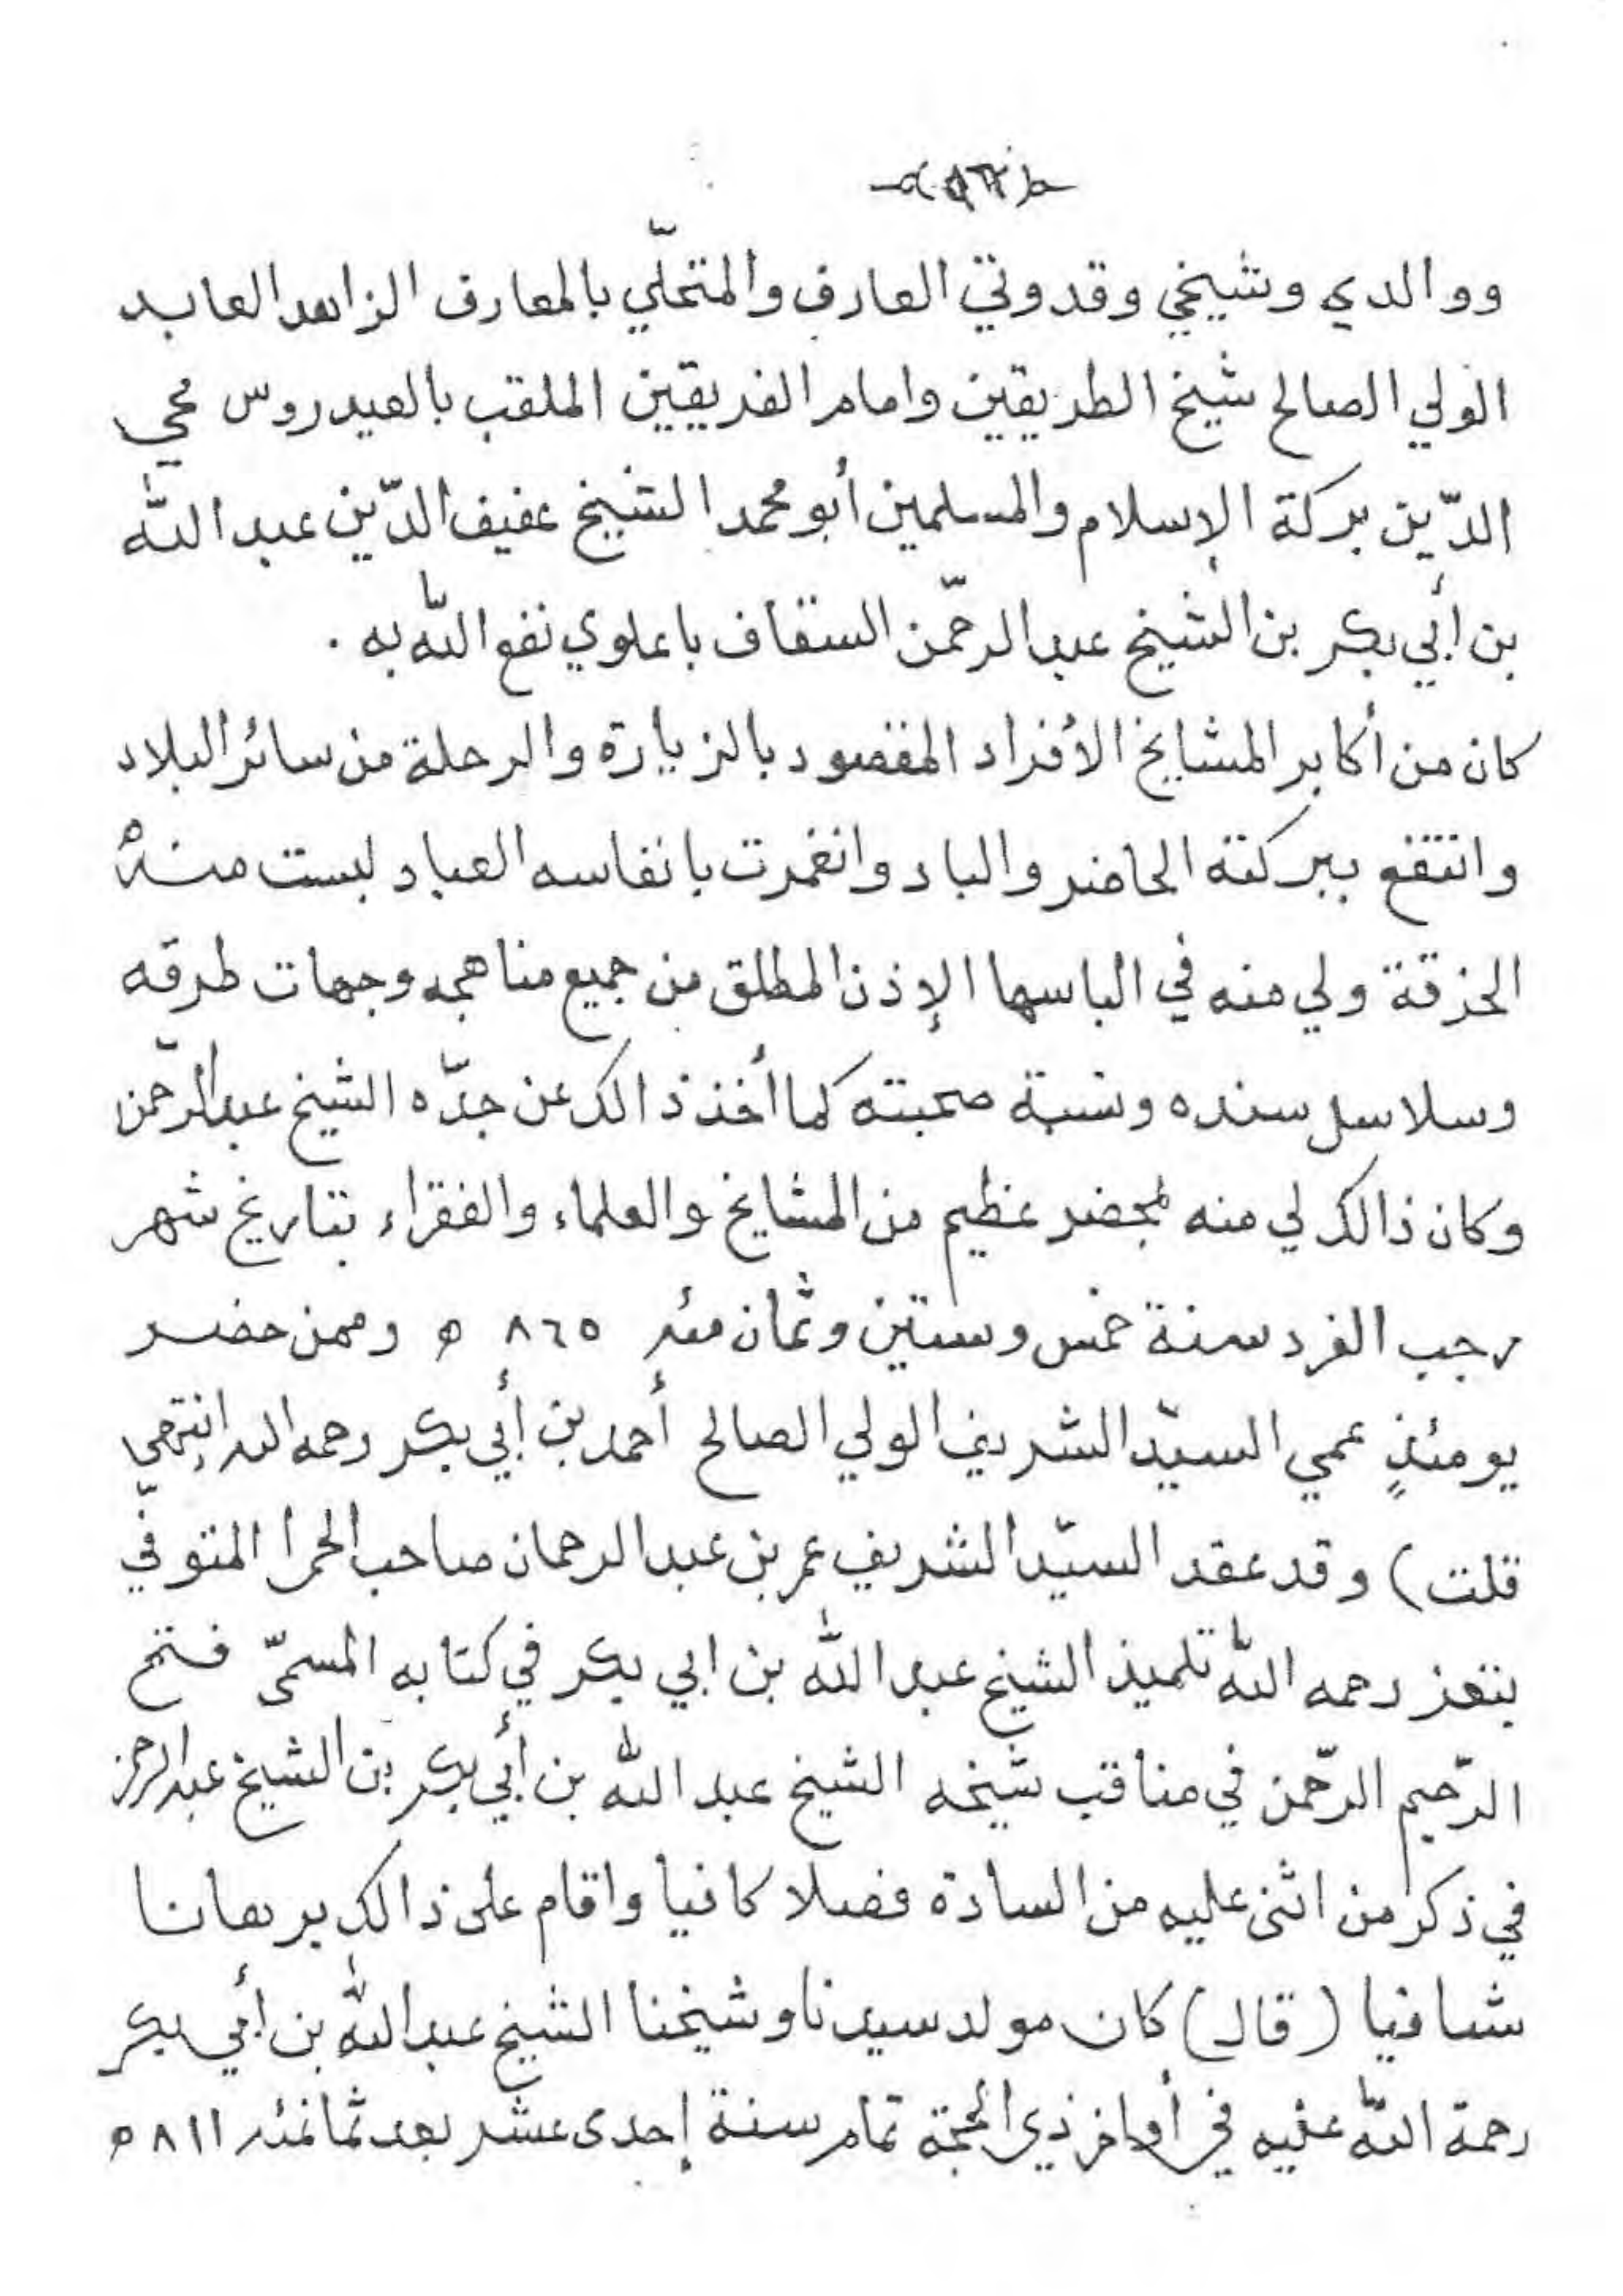 ووالدي وشيخي وقدوتي العارف والمتحلّي بالمعارف الزاهد العابد
الولي الصالح شيخ الطريقين وامام الفريقين الملقب بالعيدروس محي
الدّين بركة الإسلام والمسلمين أبو محمد الشيخ عفيف الدّين عبد الله
بن أبي بكر بن الشيخ عبد الرحمّن السقاف باعلوي نفع اللّه به .
كان من أكابر المشايخ الأفراد المقصود بالزيارة والرحلة من سائر البلاد
وانتفع ببركته الحاضر والباد وانغمرت بانفاسه العباد لبست منهُ
الخرقة ولي منه في الباسها الإذن المطلق من جميع مناهجه وجهات طرقه
وسلاسل سنده ونسبة صحبته كما أخذ ذالك عن جدّه الشيخ عبد الرّحمن
وكان ذالك لي منه بمحضر عظيم من المشايخ والعلماء والفقراء بتاريخ شهر
رجب الفرد سنة خمس وستين وثمان مئه ٨٦٥ ه وممن حضر
يومئذٍ عمي السيّد الشريف الولي الصالح أحمد بن أبي بكر رحمه الله انتهى
قلت) وقد عقد السيّد الشريف عمر بن عبد الرحمان صاحب الحمرا المتوفّي
بتعز رحمه اللّه تلميذ الشيخ عبد اللّه بن ابي بكر في كتابه المسمّى فتح
الرّحيم الرّحمن في مناقب شيخه الشيخ عبد اللّه بن أبي بكر بن الشيخ عبد الرحمن
في ذكر من اثنى عليه من السادة فصلا كافيا واقام على ذالك برهانا
شافيا (قال) كان مولد سيدنا وشيخنا الشيخ عبد اللّه بن أبي بكر
رحمة اللّه عليه في أواخر ذي الحجة تمام سنة إحدى عشر بعد ثمانمئه ٨١١ ه